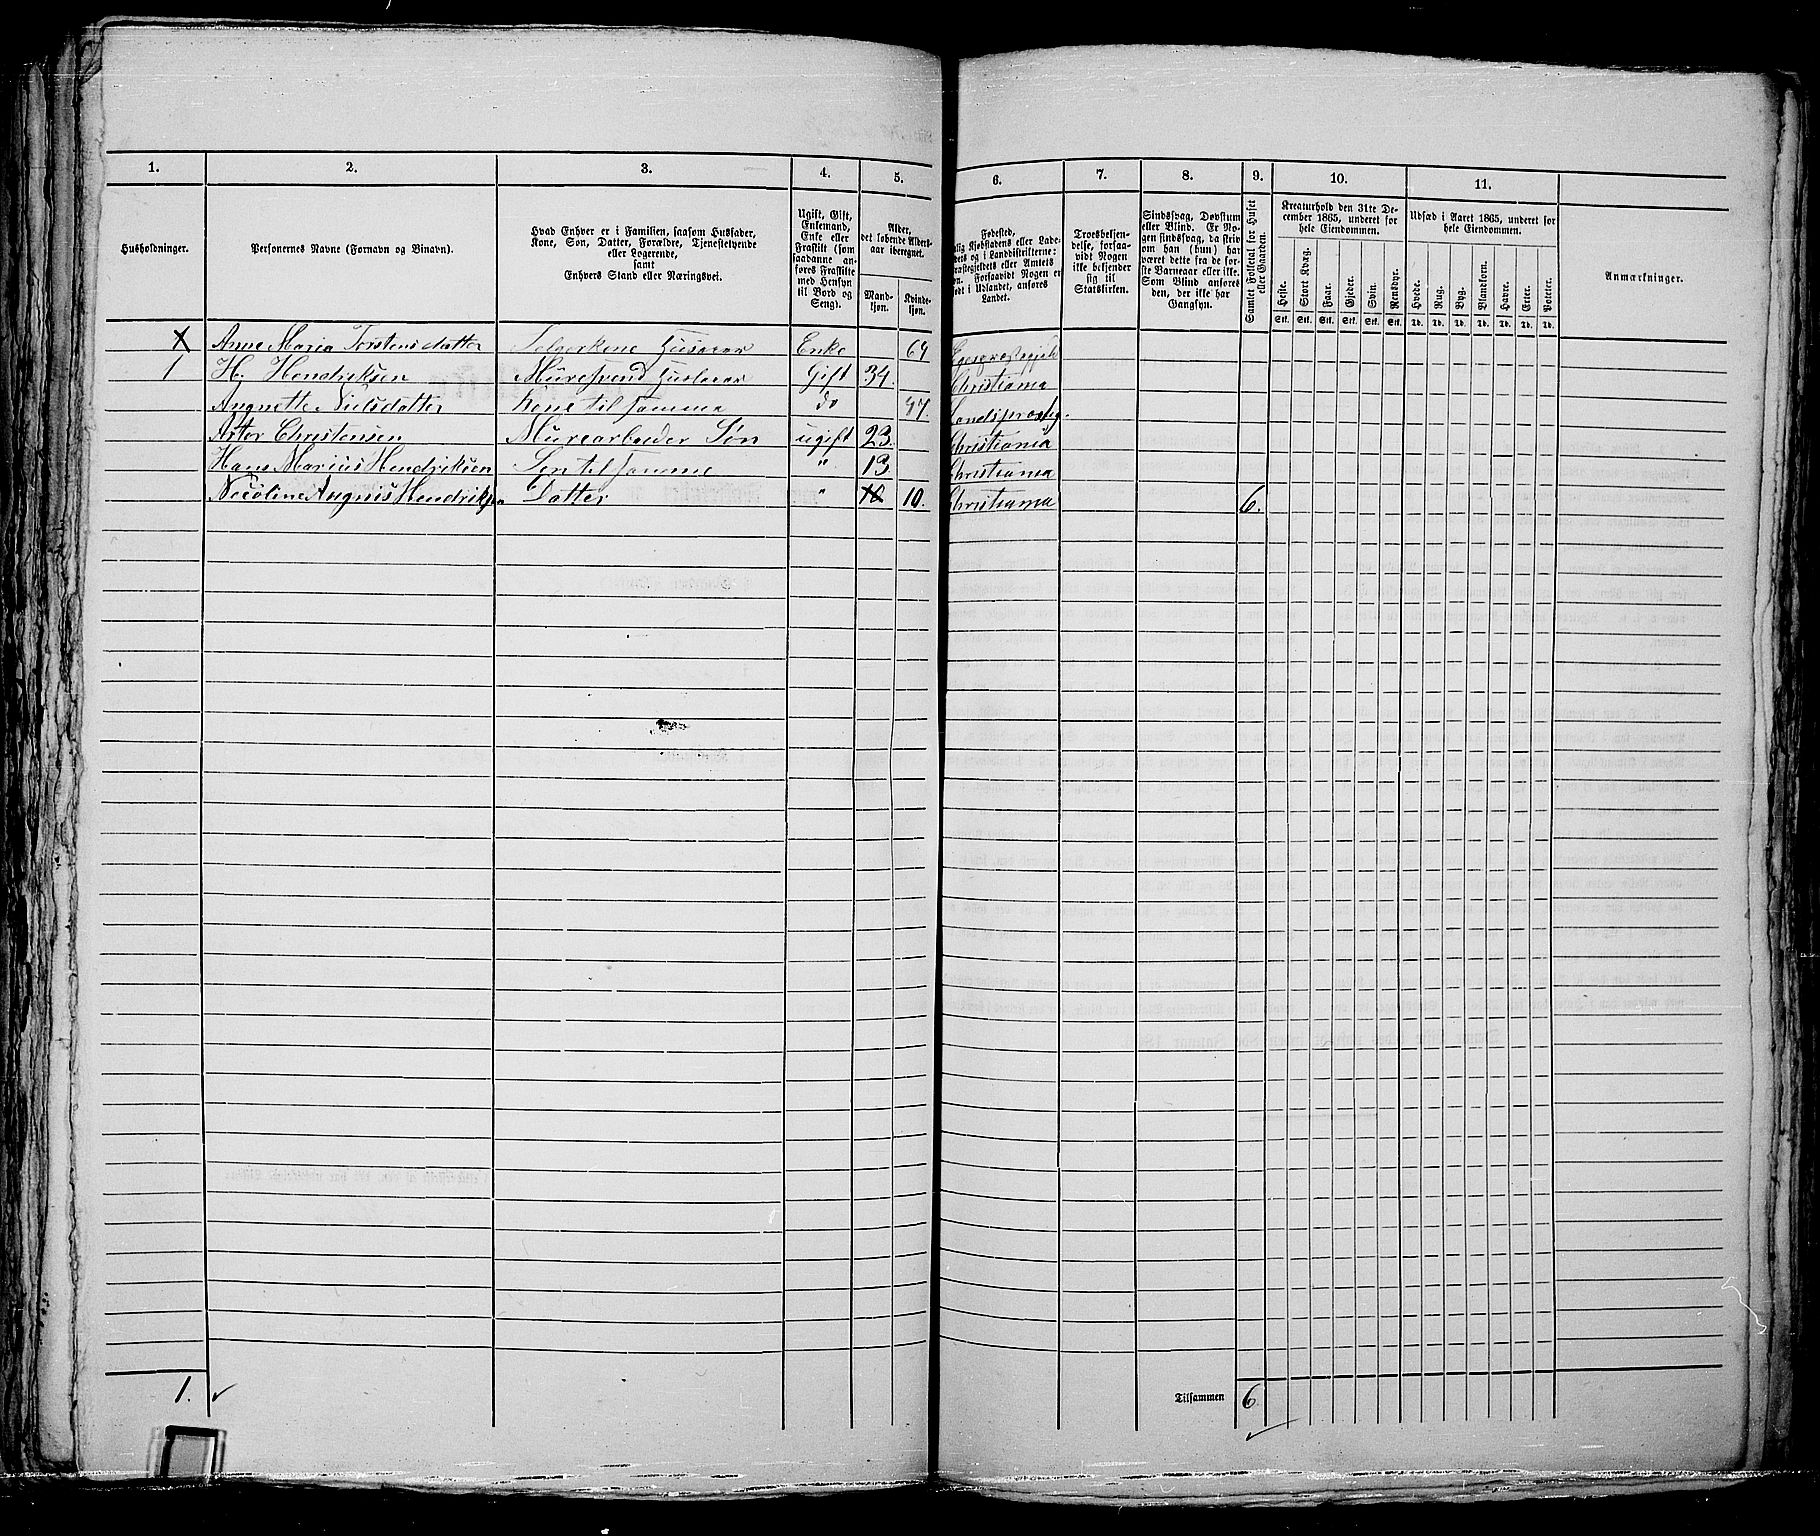 1. 2. 3. 4. 5. 6. 7. 8. 9. 10. 11.
Husholdninger.
Personernes Navne (Fornavn og Binavn).
Hvad Enhver er i Familien, saasom Husfader,
Kone, Søn, Datter, Forældre, Tjenestetyende
eller Logerende,
samt
Enhvers Stand eller Næringsvei.
Ugift, Gift,
Enkemand,
Enke eller
Fraskilt (som
saadanne an-
føres Fraskilte
med Hensyn
til Bord og
Seng).
Alder,
det løbende Alders-
aar iberegnet.
Mand-
kjøn.
Kvinde-
kjøn.
Fødested,
Kjøbstadens eller Lade-
stegjeldets eller Amtets
Forsaavidt Nogen er
født i Udlandet, anføres
Landet.
Troesbekjen-
delse, forsaa-
vidt Nogen
ikke bekjender
sig til
Statskirken.
Sindssvag, Døvstum
eller Blind. Er No-
gen sindssvag, da skriv
om han (hun) har
været dette fra de før-
ste Barneaar eller ikke.
Som Blind anføres
den, der ikke har
Gangsyn.
Samlet Folketal for Huset
eller Gaarden.
Kreaturhold den 31te De-
cember 1865, underet for
hele Eiendommen.
Heste. Stort Kvæg. Faar. Gjeder. Svin. Rensdyr.
Stk. Stk. Stk. Stk. Stk. Stk.
Udsæd i Aaret 1865, underet for
hele Eiendommen.
Hvede. Rug. Byg. Blandkorn. Havre. Erter. Poteter.
Td. Td. Td. Td. Td. Td. Td.
Anmærkninger.
X Anne Maria Torstensdatter Enke 64
1 H. Hendriksen Muresvend Gift 34. Christiania
Angnette Nielsdatter Kone til samme do 47.
Christensen Murearbeider Søn ugift 23. Christiania
Hans Marius Hendriksen Søn til samme " 13 Christiania
Nicoline Angnis Hendriksen Datter " 10 10. Christiania 6.
1. Tilsammen 6